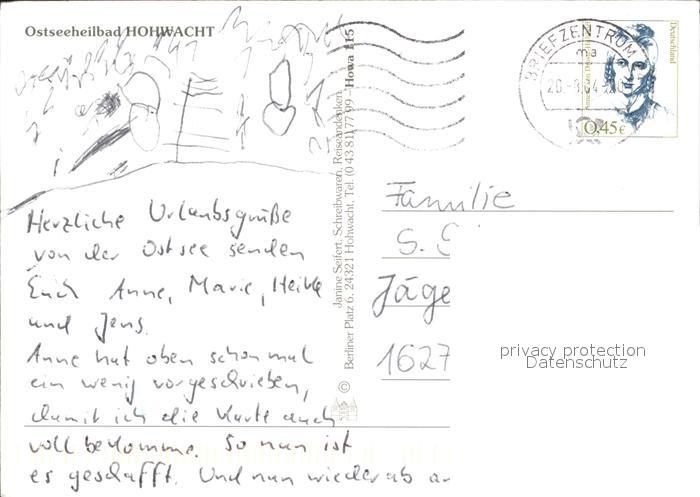 Ostseeheilbad HOHWACHT
Herzliche Urlaubsgrüße
von der Ostsee senden
Euch Anne, Marie, Heike
und Jens.
Anne hat oben schon mal
ein wenig vorgeschrieben,
damit ich die Karte auch
voll bekomme. So nun ist
es geschafft. Und nun wieder ab an
Janine Seifert, Schreibwaren, Reiseandenken,
Berliner Platz 6, 24321 Hohwacht, Tel. (0 43 81) 77 99 - Howa 115
©
BRIEFZENTRUM
ma
Deutschland
0,45€
Familie
S.
Jäge
1627
privacy protection
Datenschutz